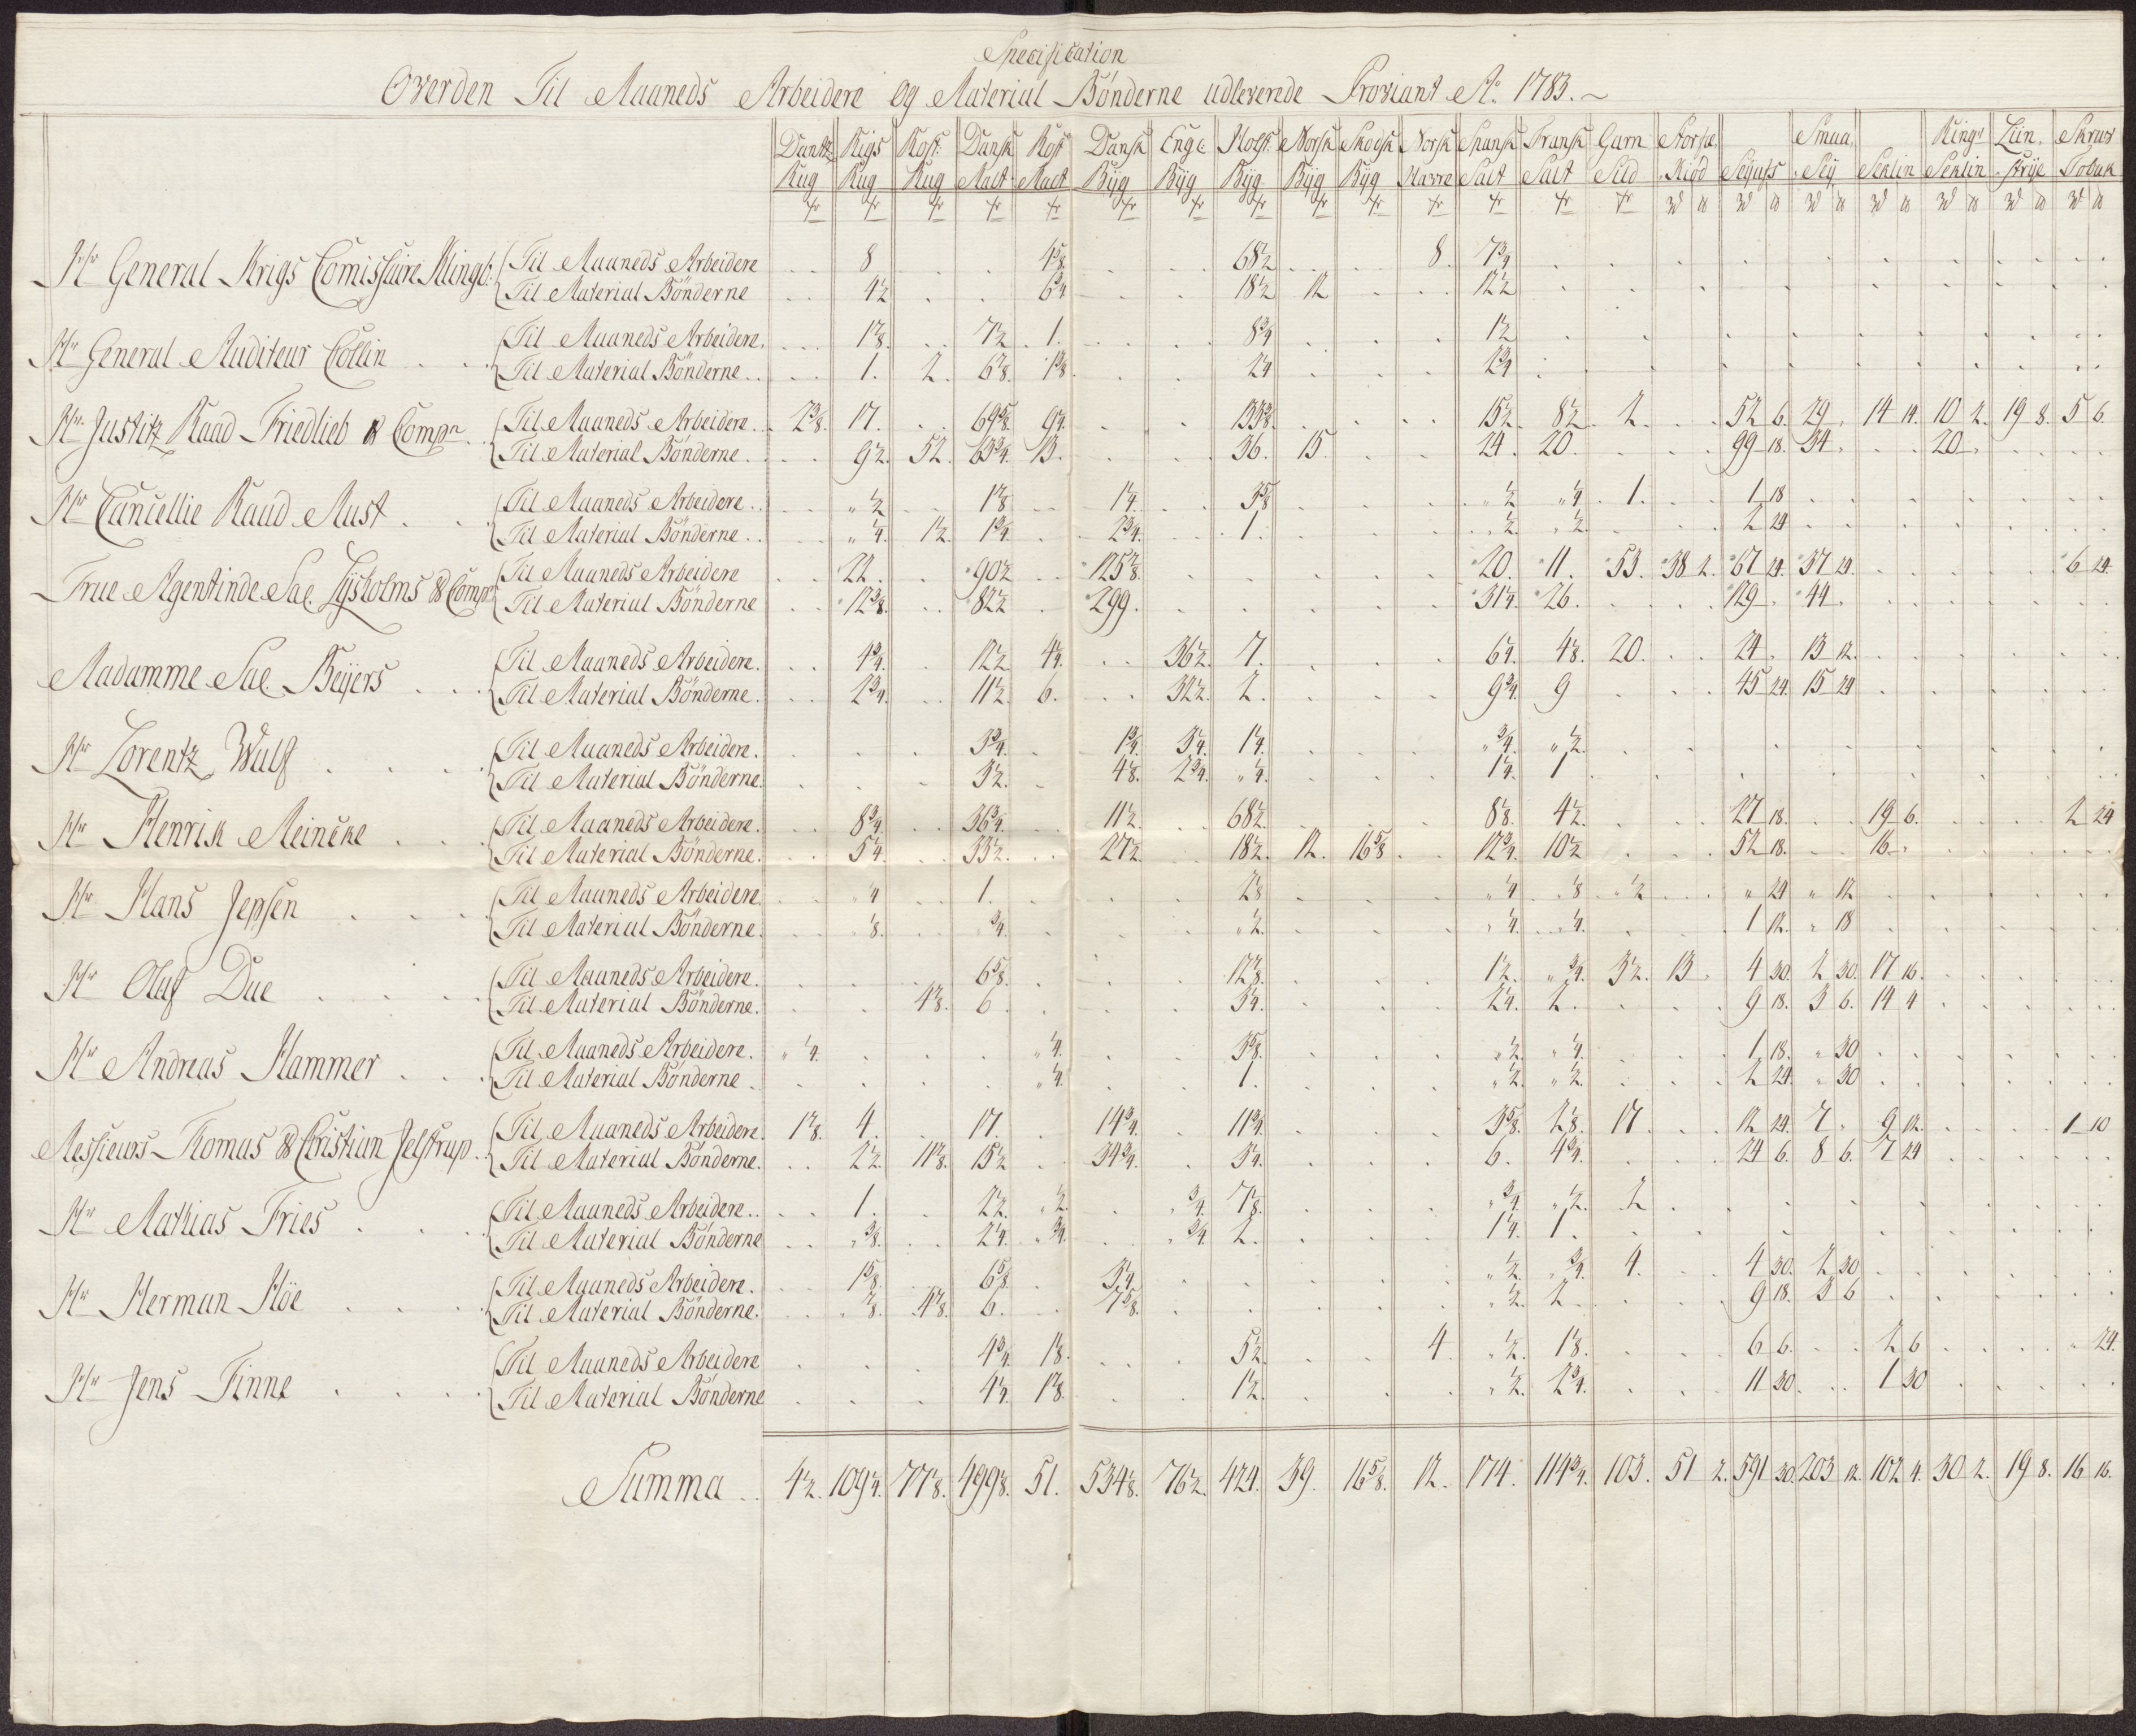 Specification
Overden Til Maaneds Arbeidere og Material Bönderne udleverede Proviant Ao. 1783.
Dantz Rigs Kost. Dansk Kost Dansk Engl Holst. Norsk Skotsk Norsk Spansk Fransk Garn Norske Smaa Ring Liin Skraae
Rug Rug Rug Malt Malt Byg Byg Byg Byg Byg Havre Salt Salt Sild Kiöd Seyufs Sey Seklin Seklin Strye Tobak
Hr General Krigs Comissaire Klingb: Til Maaneds Arbeidere 8 1 5/8 68 1/2 8 7 3/4
Til Material Bönderne 4 1/2 6 3/4 18 1/2 12 12 1/2
Hr General Auditeur Collin Til Maaneds Arbeidere 1 7/8 7 1/2 1 8 3/4 1 1/2
Til Material Bönderne 1 2 6 7/8 1 3/8 2 1/4 2 3/4
Hr Justitz Raad Friedlieb & Compn Til Maaneds Arbeidere 2 3/8 17 69 5/8 9 1/4 133 3/8 15 1/2 8 1/2 2 52 6 29 14 14 10 2 19 8 5 6
Til Material Bönderne 9 1/2 52 63 3/4 13 36 15 24 20 99 18 34 20
Hr Cancellie Raad Aust Til Maaneds Arbeidere 1/2 1 7/8 1 1/4 3 5/8 1/2 1/4 1 1 18
Til Material Bönderne 1/4 1 1/2 1 3/4 2 3/4 1 1/2 1/2 2 24
Frue Agentinde Sal. Lysholms & Compn Til Maaneds Arbeidere 22 90 1/2 125 7/8 20 11 53 38 2 67 24 37 24 6 24
Til Material Bönderne 12 3/8 82 1/2 299 31 1/4 26 129 44
Madamme Sal. Beyers Til Maaneds Arbeidere 4 3/4 12 1/2 4 1/4 36 1/2 7 6 1/4 4 1/8 20 24 13 12
Til Material Bönderne 2 3/4 11 1/2 6 32 1/2 2 9 3/4 9 45 24 15 24
Hr Lorentz Wulf Til Maaneds Arbeidere 3 3/4 1 3/4 3 1/4 1 1/4 3/4 1/2
Til Material Bönderne 3 1/2 4 1/8 2 3/4 1/4 1 1/4 1
Hr Henrik Meincke Til Maaneds Arbeidere 8 3/4 36 3/4 11 1/2 68 1/2 8 1/8 4 1/2 27 18 19 6 2 24
Til Material Bönderne 5 1/4 33 1/2 27 1/2 18 1/2 12 16 5/8 12 3/4 10 1/2 52 18 16
Hr Hans Jepsen Til Maaneds Arbeidere 1/4 1 2 1/8 1/4 1/8 1/2 24 12
Til Material Bönderne 1/8 3/4 1/2 1/4 1/4 1 12 18
Hr Oluf Due Til Maaneds Arbeidere 6 5/8 12 7/8 1 1/2 3/4 3 1/2 13 4 30 2 30 17 16
Til Material Bönderne 4 7/8 6 3 1/4 2 1/4 2 9 18 3 6 14 4
Hr Andreas Hammer Til Maaneds Arbeidere 1/4 1/4 3 5/8 1/2 1/4 1 18 30
Til Material Bönderne 1/4 1 1/2 1/2 2 24 30
Messieurs Tomas & Cristian Jelstrup Til Maaneds Arbeidere 1 7/8 4 17 14 3/4 11 3/4 3 5/8 2 1/8 17 12 24 7 9 12 1 10
Til Material Bönderne 2 1/2 11 7/8 15 1/2 34 3/4 3 1/4 6 4 3/4 24 6 8 6 7 24
Hr Mathias Fries Til Maaneds Arbeidere 1 2 1/2 1/2 3/4 7 1/8 3/4 1/2 2
Til Material Bönderne 3/8 2 1/4 3/4 3/4 2 1 1/4 1
Hr Herman Höe Til Maaneds Arbeidere 1 5/8 6 5/8 3 1/4 1/2 3/4 4 4 30 2 30
Til Material Bönderne 7/8 4 7/8 6 7 5/8 1/2 2 9 18 3 6
Hr Jens Finne Til Maaneds Arbeidere 4 3/4 1 1/8 5 1/2 4 1/2 1 1/8 6 6 2 6 24
Til Material Bönderne 4 1/4 1 7/8 1 1/2 1/2 2 3/4 11 30 1 30
Summa 4 1/2 109 1/4 77 1/8 499 1/8 51 534 1/8 76 1/2 424 39 16 5/8 12 174 114 3/4 103 51 2 591 30 203 12 102 4 30 2 19 8 16 16